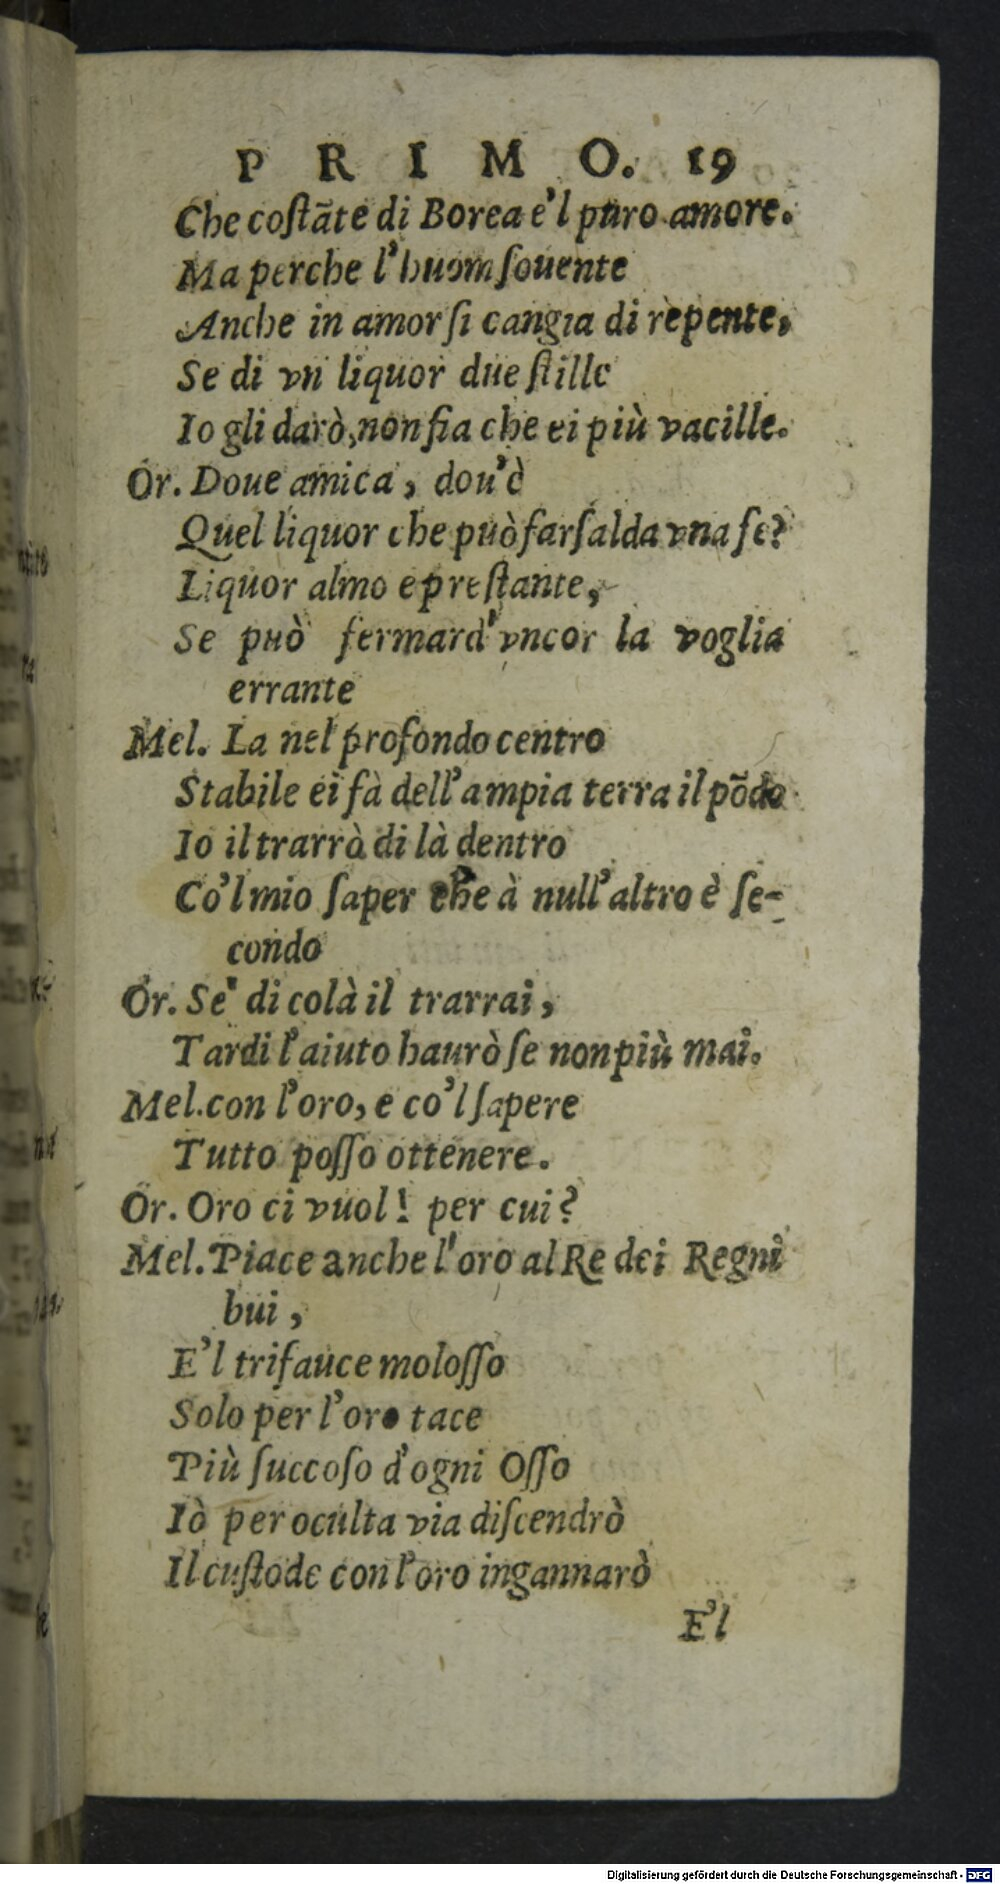 PRIMO. 19
Che costāte di Borea e'l puro amore.
Ma perche l'huom souente
Anche in amor si cangia di repente,
Se di vn liquor due stille
Io gli darò, non fia che ei più vacille.
Or. Doue amica, dou'è
Quel liquor che può far salda vna fe?
Liquor almo e prestante,
Se può fermar d'vn cor la voglia
errante
Mel. La nel profondo centro
Stabile ei fà dell'ampia terra il pōdo
Io il trarrò di là dentro
Co'l mio saper che à null'altro è se-
condo
Or. Se' di colà il trarrai,
Tardi l'aiuto haurò se non più mai.
Mel. con l'oro, e co'l sapere
Tutto posso ottenere.
Or. Oro ci vuol! per cui?
Mel. Piace anche l'oro al Re dei Regni
bui,
E'l trifauce molosso
Solo per l'oro tace
Più succoso d'ogni Osso
Iò per oculta via discendrò
Il custode con l'oro ingannarò
E'l
Digitalisierung gefördert durch die Deutsche Forschungsgemeinschaft - DFG